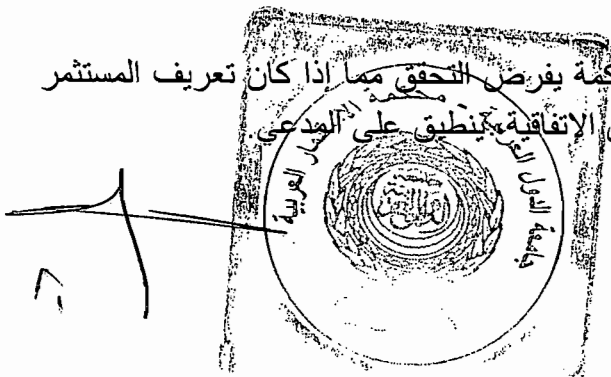 كمة يفرض التحقق مما اذا كان تعريف المستثمر
الاتفاقية ينطبق على المدعي.
محكمة الاستثمار العربية
جامعة الدول العربية